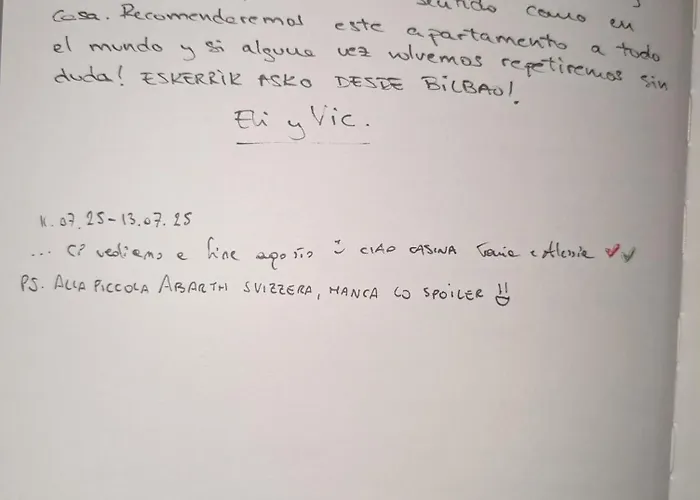 como en
casa. Recomendaremos este apartamento a todo
el mundo y si alguna vez volvemos repetiremos sin
duda! ESKERRIK ASKO DESDE BILBAO!
Eli y Vic.
11.07.25-13.07.25
... Ci vediamo a fine agosto CIAO CASINA e Alessia
PS. ALLA PICCOLA ABARTH SVIZZERA, MANCA LO SPOILER !!